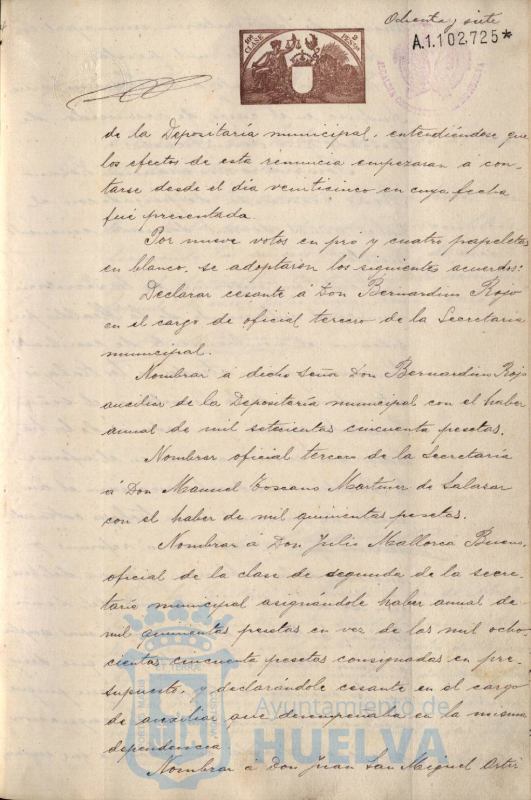 Ochenta y siete
10ª CLASE 2 PESETAS
A.1.102.725*
de la Depositaría municipal, entendiéndose que
los efectos de esta renuncia empezaran á con-
tarse desde el dia veinticinco en cuya fecha
fué presentada.
Por nueve votos en pró y cuatro papeletas
en blanco, se adoptaron los siguientes acuerdos:
Declarar cesante á Don Bernardino Rojo
en el cargo de oficial tercero de la Secretaria
municipal.
Nombrar á dicho Señor Don Bernardino Rojo
auxiliar de la Depositaría municipal con el haber
anual de mil setecientas cincuenta pesetas.
Nombrar oficial tercero de la Secretaría
á Don Manuel Toscano Martinez de Salazar
con el haber de mil quinientas pesetas.
Nombrar á Don Julio Mallorca Bueno,
oficial de la clase de segunda de la secre-
taría municipal asignándole haber anual de
mil quinientas pesetas en vez de las mil ocho-
cientas cincuenta pesetas consignadas en pre-
supuesto, y declarándole cesante en el cargo
de auxiliar que desempeñaba en la misma
dependencia.
Nombrar á Don Juan San Miguel Ortiz
Ayuntamiento de
HUELVA